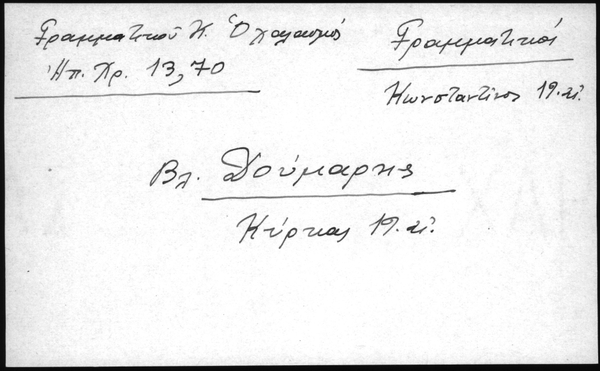 Γραμματικοῦ Κ. Ὁ χαλασμός
Ἠπ. Χρ. 13,70
Γραμματικός
Κωνσταντίνος 19. αἰ.
Βλ. Δούμαρης
Κύρκας 19. αἰ.